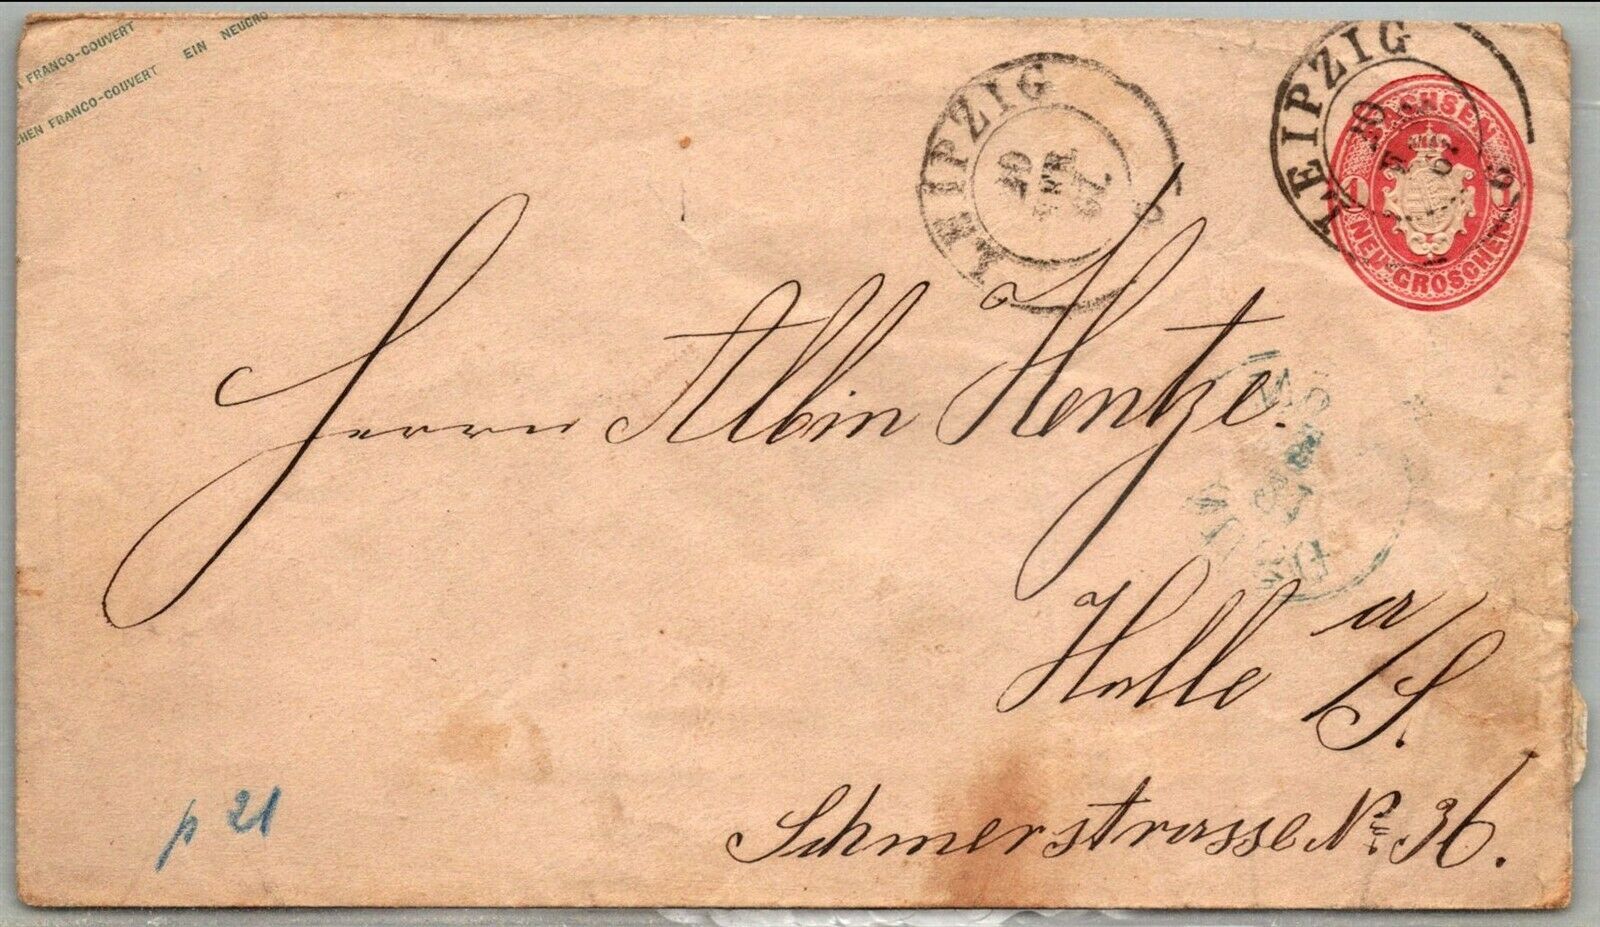 FRANCO-COUVERT EIN NEUGRO
CHEN FRANCO-COUVERT
LEIPZIG
20
FEB.
67
LEIPZIG
20
F
67
SACHSEN
1 1
NEU-GROSCHEN
Herrn Albin Hentze.
Halle a/S.
Schmerstrasse No. 36.
p 21